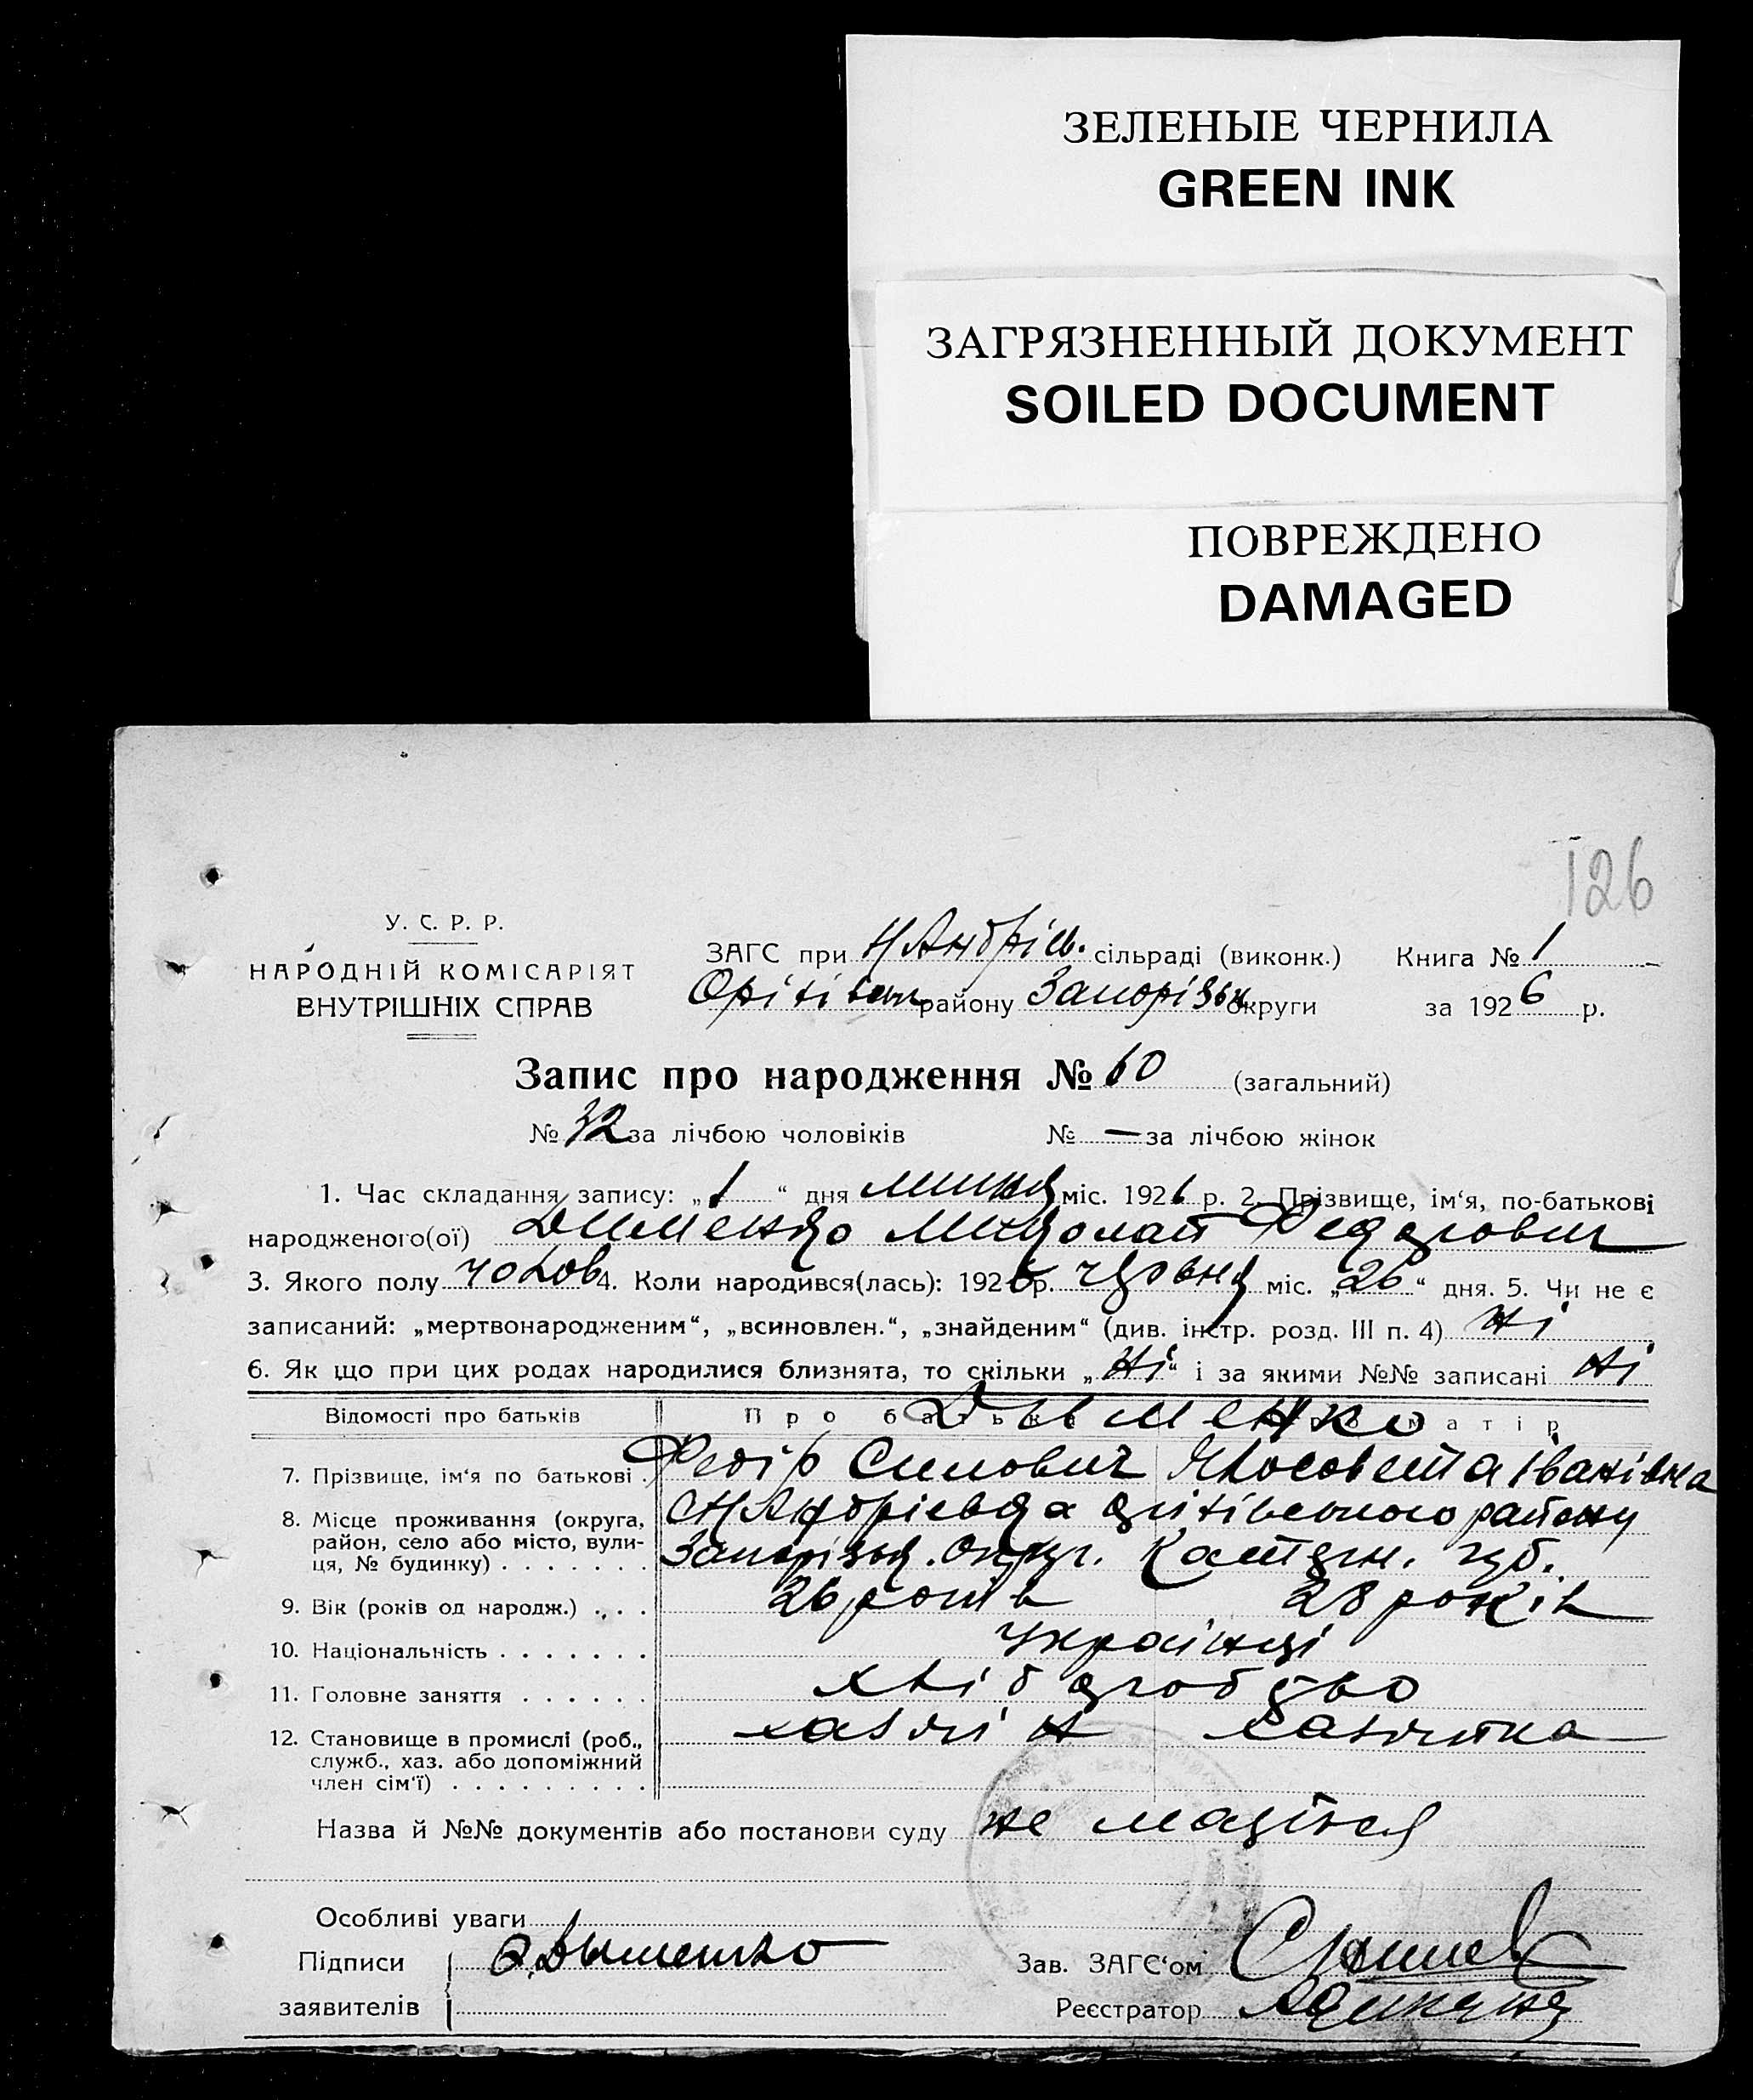 ЗЕЛЕНЫЕ ЧЕРНИЛА
GREEN INK
ЗАГРЯЗНЕННЫЙ ДОКУМЕНТ
SOILED DOCUMENT
ПОВРЕЖДЕНО
DAMAGED
126
У. С. Р. Р.
НАРОДНІЙ КОМІСАРІЯТ
ВНУТРІШНІХ СПРАВ
ЗАГС при Н Андрієв. сільраді (виконк.) Книга № 1
району Запорізьк округи за 1926 р.
Запис про народження № 60 (загальний)
№ 32 за лічбою чоловіків № — за лічбою жінок
1. Час складання запису: „1“ дня липня міс. 1926 р. 2. Прізвище, ім‘я, по-батькові
народженого(ої) Дименко Миколай Федорович
3. Якого полу чолов 4. Коли народився(лась): 1926 р. червня міс. „26“ дня. 5. Чи не є
записаний: „мертвонародженим“, „всиновлен.“, „знайденим“ (див. інстр. розд. III п. 4) Ні
6. Як що при цих родах народилися близнята, то скільки „Ні“ і за якими №№ записані Ні
Відомості про батьків Про батька Дыменко Про матір
7. Прізвище, ім‘я по батькові . Федір Силович Іванівна
8. Місце проживання (округа, район, село або місто, вулиця, № будинку) . . . . . . . Н Андрієвка району
Запорізьк. Округ. Катерин. губ.
9. Вік (років од народж.) . . . 26 років 28 років
10. Національність . . . . . . . Українці
11. Головне заняття . . . . . . хліборобство
12. Становище в промислі (роб., хазяїн хазяйка
служб., хаз. або допоміжний
член сім‘ї) . . . . . . . . .
Назва й №№ документів або постанови суду не мається
Особливі уваги
Підписи Дыменко Зав. ЗАГС‘ом
заявителів Реєстратор